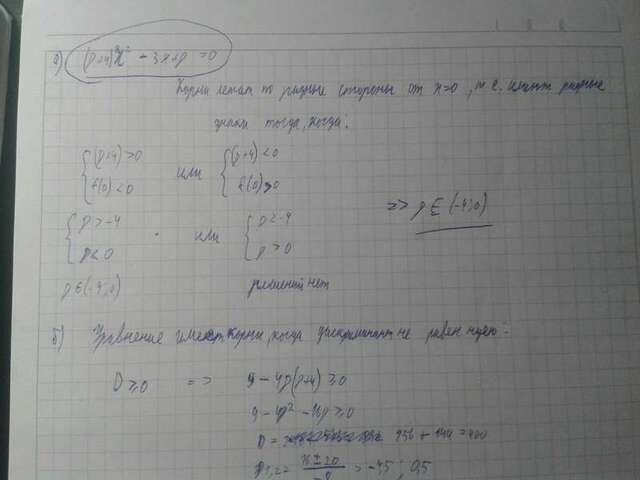 а) (p+4)x² - 3x+p = 0
Корни лежат по разные стороны от x=0, т.е. имеют разные
знаки тогда, когда:
{(p+4)>0 или {(p+4)<0
{f(0)<0 {f(0)>0
{p>-4 или {p<-4
{p<0 {p>0
=> p∈(-4;0)
p∈(-4;0) решений нет
б) Уравнение имеет корни, когда дискриминант не равен нулю:
D≥0 => 9-4p(p+4)≥0
9-4p²-16p≥0
D = 256+144=400
p1,2= 16±20/-8 = -4,5; 0,5